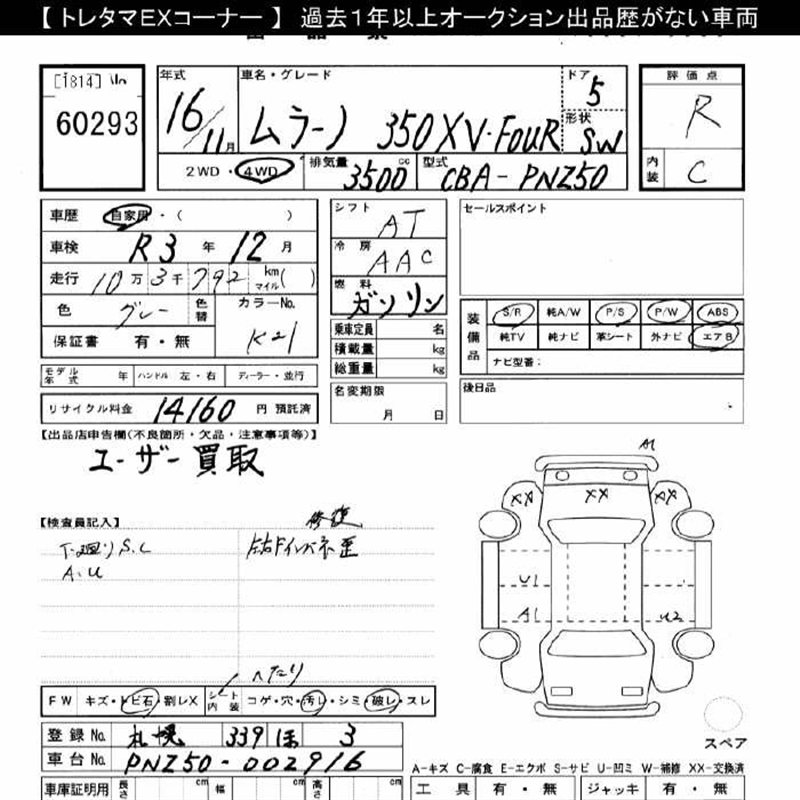 【トレタマEXコーナー】 過去1年以上オークション出品歴がない車両
[1814]
60293
年式 16/11月
車名・グレード ムラーノ 350XV・FOUR
ドア 5
形状 SW
評価点 R
内装 C
2WD・4WD
排気量 3500 cc
型式 CBA-PNZ50
車歴 自家用・( )
車検 R3年 12月
走行 10万 3千 792 km マイル( )
色 グレー 色替 カラーNo. K21
保証書 有・無
シフト AT
冷房 AAC
燃料 ガソリン
乗車定員 名
積載量 kg
総重量 kg
セールスポイント
装備品 S/R 純A/W P/S P/W ABS
純TV 純ナビ 革シート 外ナビ エアB
ナビ型番：
モデル年式 年 ハンドル 左・右 ディーラー・並行
名変期限 月 日
後日品
リサイクル料金 14160 円 預託済
【出品店申告欄(不良箇所・欠品・注意事項等)】
ユーザー買取
【検査員記入】
修復
下廻りS.C
左右Fインパネ歪
A.U
A1
XX XX XX
U1
A1 U2
へたり
FW キズ・トビ石・割レX シート内装 コゲ・穴・汚レ・シミ・破レ・スレ
スペア
登録No. 札幌 339 ほ 3
車台No. PNZ50-002916
A-キズ C-腐食 E-エクボ S-サビ U-凹ミ W-補修 XX-交換済
車庫証明用 長さ cm 幅 cm 高さ cm
工具 有・無 ジャッキ 有・無